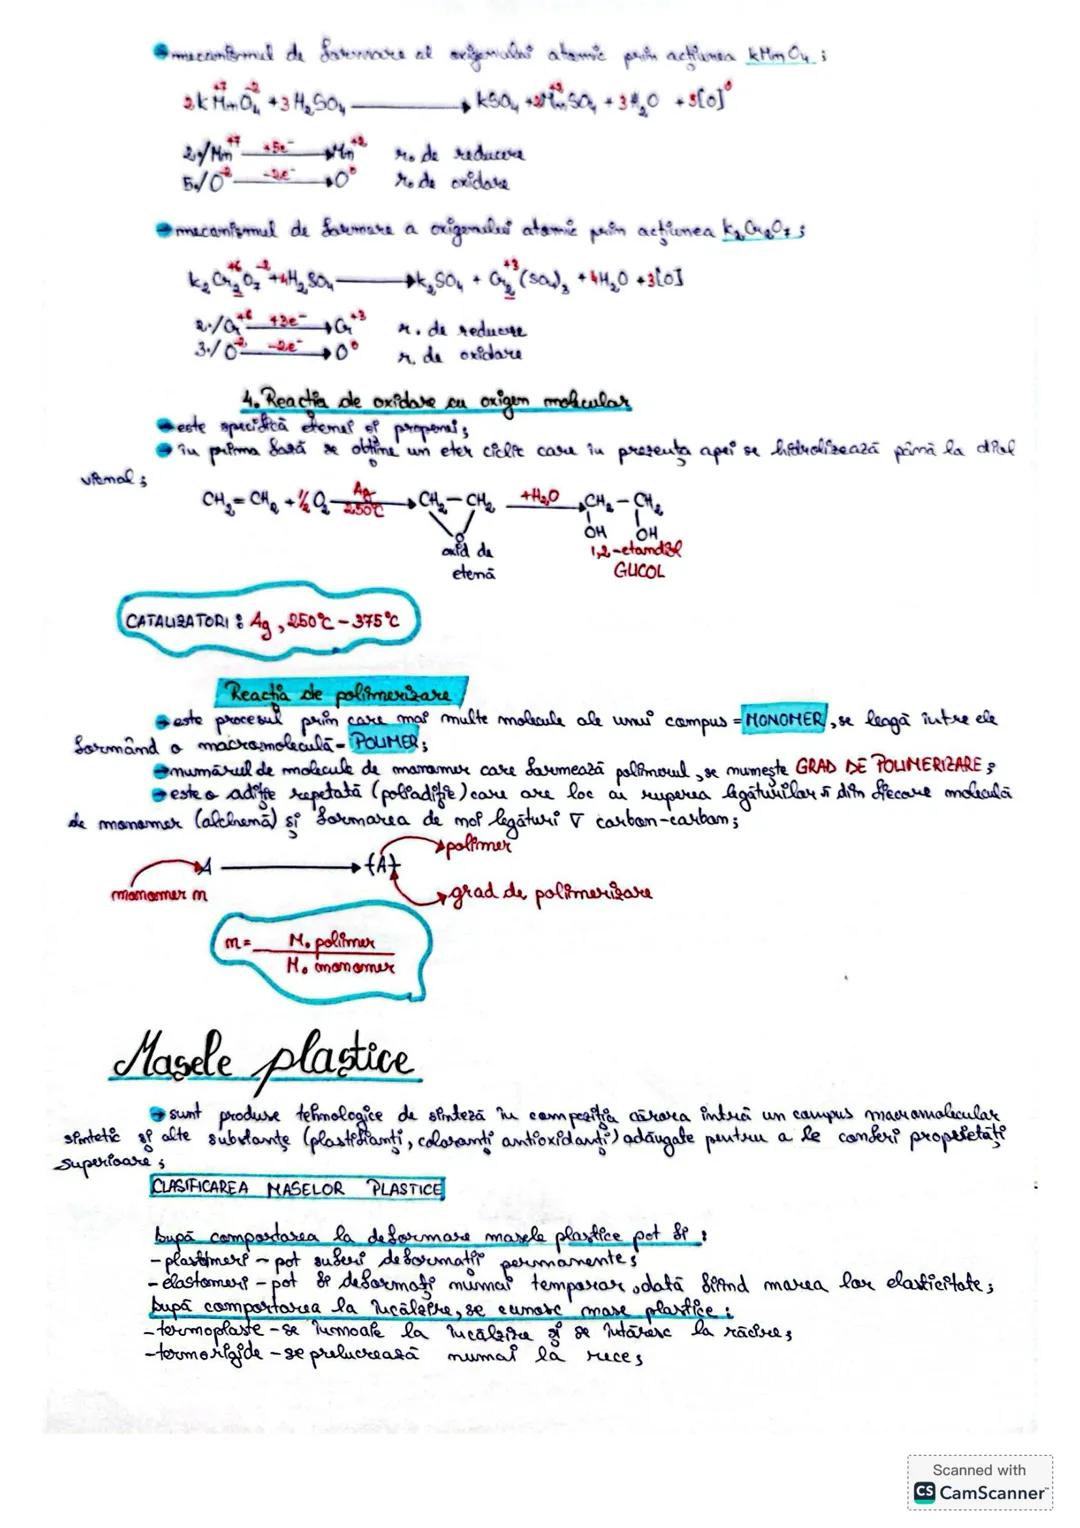 mecanismul de formare al oxigenului atomic prin acțiunea KMnO4 ;
2KMnO4 + 3H2SO4 → KSO4 + 2MnSO4 + 3H2O + 5[O]
+7 -2 +2 0
2./Mn+7 +5e- → Mn+2 r. de reducere
5./O-2 -2e- → O0 r. de oxidare
mecanismul de formare a oxigenului atomic prin acțiunea K2Cr2O7 ;
K2Cr2O7 + 4H2SO4 → K2SO4 + Cr2(SO4)3 + 4H2O + 3[O]
+6 -2 +3
2./Cr+6 +3e- → Cr+3 r. de reducere
3./O-2 -2e- → O0 r. de oxidare
4. Reacția de oxidare cu oxigen molecular
este specifică etenei și propenei;
în prima fază se obține un eter ciclic care în prezența apei se hidrolizează până la diol
vicinal ;
CH2=CH2 + ½ O2 Ag 250°C → CH2 – CH2 +H2O → CH2 – CH2
O OH OH
oxid de 1,2-etandiol
etenă GLICOL
CATALIZATORI : Ag , 250°C – 375°C
Reacția de polimerizare
este procesul prin care mai multe molecule ale unui compus = MONOMER , se leagă între ele
formând o macromoleculă - POLIMER ;
numărul de molecule de monomer care formează polimerul , se numește GRAD DE POLIMERIZARE ;
este o adiție repetată (poliadiție) care are loc cu ruperea legăturilor π din fiecare moleculă
de monomer (alchenă) și formarea de noi legături ∇ carbon-carbon;
A → {A} polimer
monomer n grad de polimerizare
n = M. polimer
M. monomer
Masele plastice
sunt produse tehnologice de sinteză în compoziția cărora intră un compus macromolecular
sintetic și alte substanțe (plastifianți, coloranți antioxidanți) adăugate pentru a le conferi proprietăți
superioare ;
CLASIFICAREA MASELOR PLASTICE
După comportarea la deformare masele plastice pot fi :
- plastomeri – pot suferi deformații permanente;
- elastomeri – pot fi deformați numai temporar , dată fiind marea lor elasticitate ;
După comportarea la încălzire, se cunosc mase plastice :
- termoplaste – se înmoaie la încălzire și se întăresc la răcire;
- termorigide – se prelucrează numai la rece ;
Scanned with
CS CamScanner